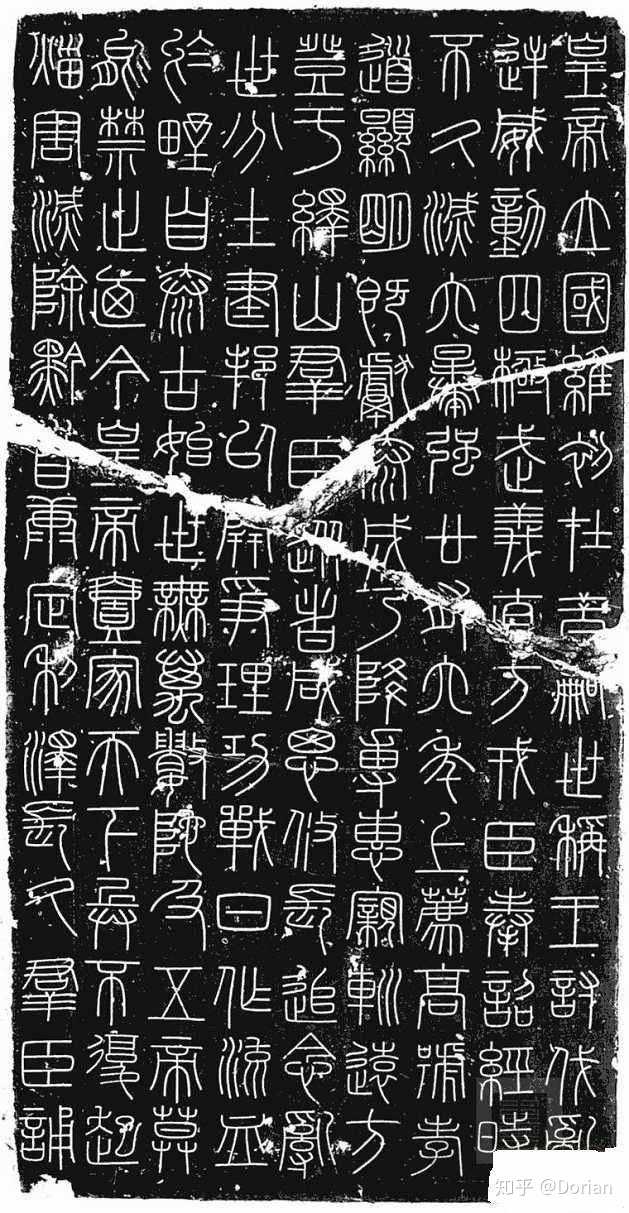 皇帝立國維初在昔嗣世稱王討伐亂
逆威動四極武義直方戎臣奉詔經時
不久滅六暴強廿有六年上薦高號孝
道顯明既獻泰成乃降專惠親巡遠方
登于繹山羣臣從者咸思攸長追念亂
世分土建邦以開爭理功戰日作流血
於野自泰古始世無萬數陀及五帝莫
能禁止迺今皇帝壹家天下兵不復起
災害滅除黔首康定利澤長久羣臣誦
知乎 @Dorian